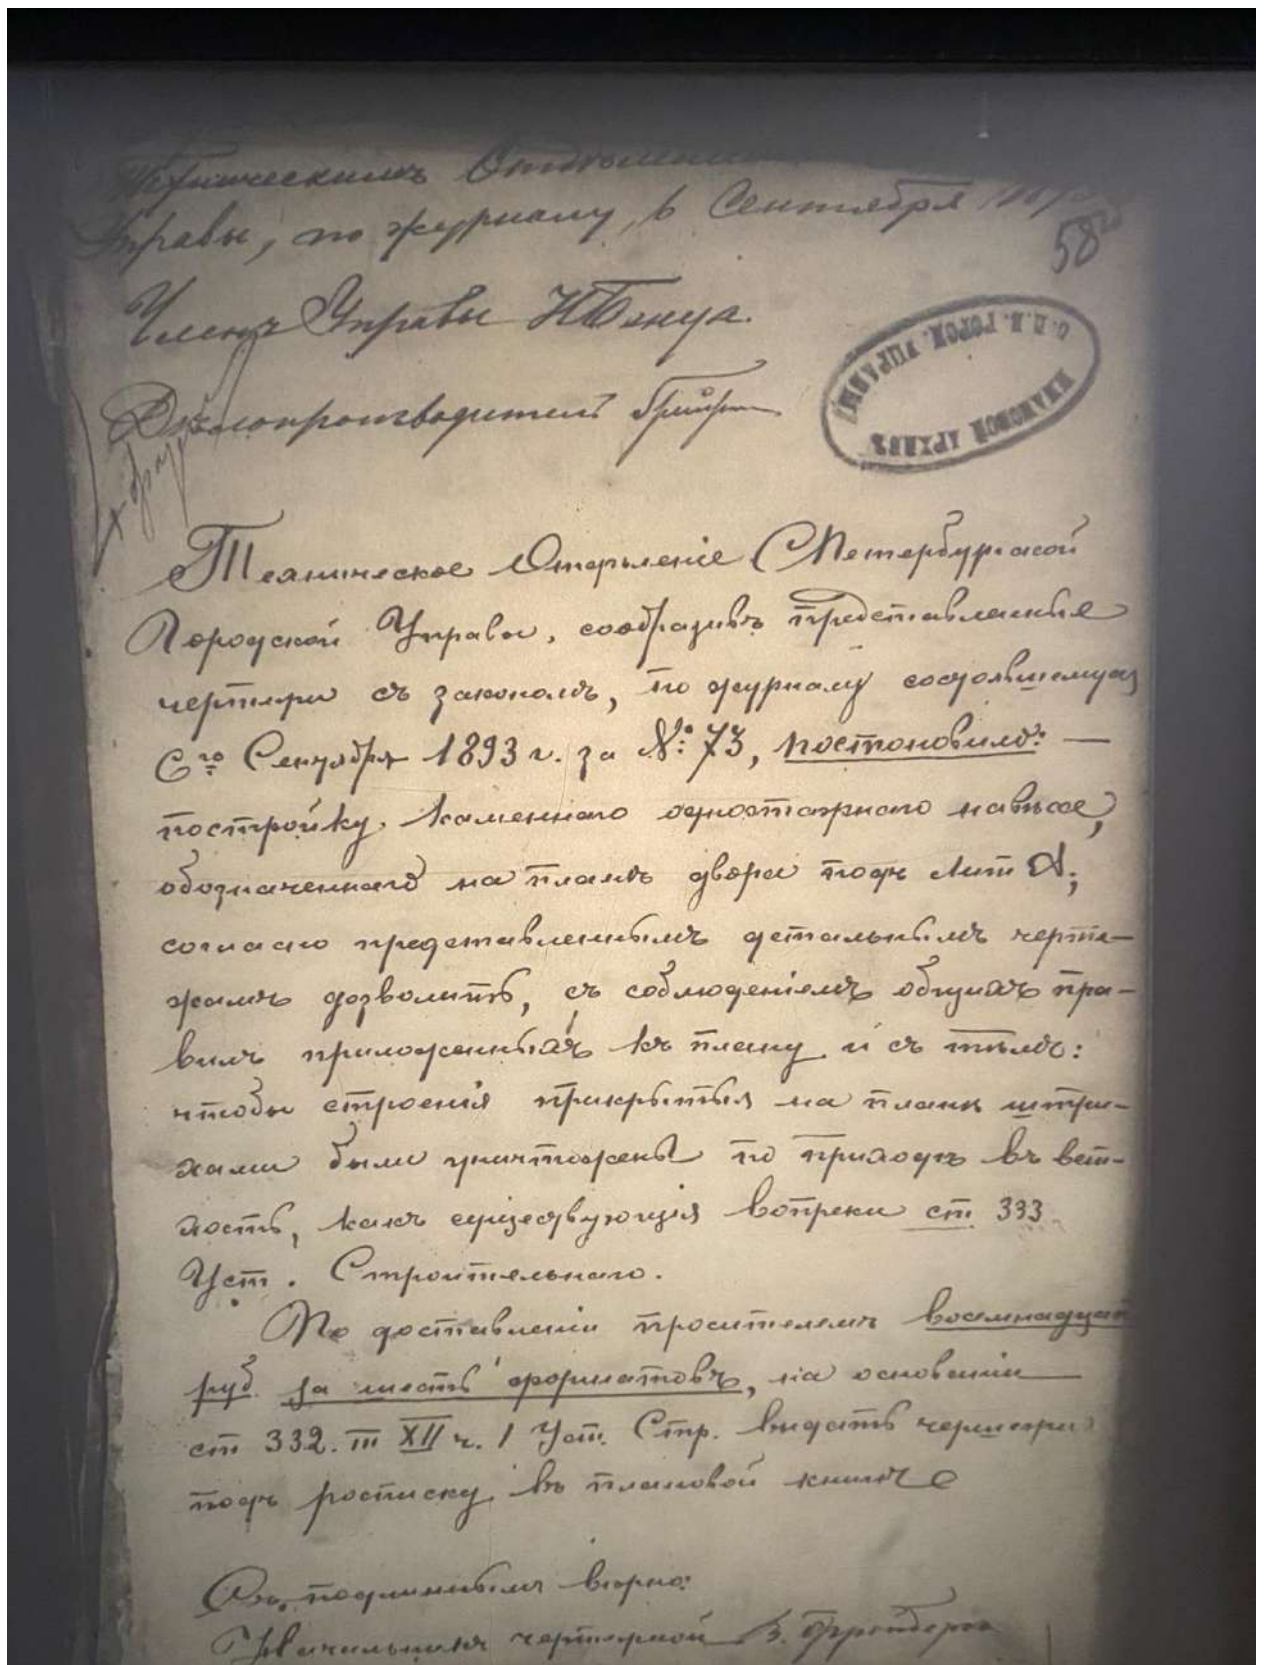 Техническимъ Отдѣленіемъ
Управы, по журналу, 6 Сентября
58
Членъ Управы Н Бенуа.
Дѣлопроизводитель
С.П.Б. ГОРОД. УПРАВЫ
ПЛАНОВОЙ АРХИВЪ
Техническое Отдѣленіе СПетербургской
Городской Управы, сообразивъ представленные
чертежи съ закономъ, по журналу состоявшемуся
6го Сентября 1893 г. за №: 73, постановило: —
постройку каменнаго одноэтажнаго навѣса,
обозначеннаго на планѣ двора подъ Лит А,
согласно представленнымъ детальнымъ черте-
жамъ дозволить, съ соблюденіемъ общихъ пра-
вилъ приложенныхъ къ плану и съ тѣмъ:
чтобы строенія прикрытыя на планѣ штри-
хами были уничтожены по приходѣ въ вет-
хость, какъ существующія вопреки ст 333
Уст. Строительнаго.
По доставленіи просителемъ восемнадцат
руб. за шесть форматовъ, на основаніи
ст 332. III XII ч. 1 Уст. Стр. выдать чертежи
подъ росписку въ плановой книгѣ
Съ подлиннымъ вѣрно:
Начальникъ чертежной В.